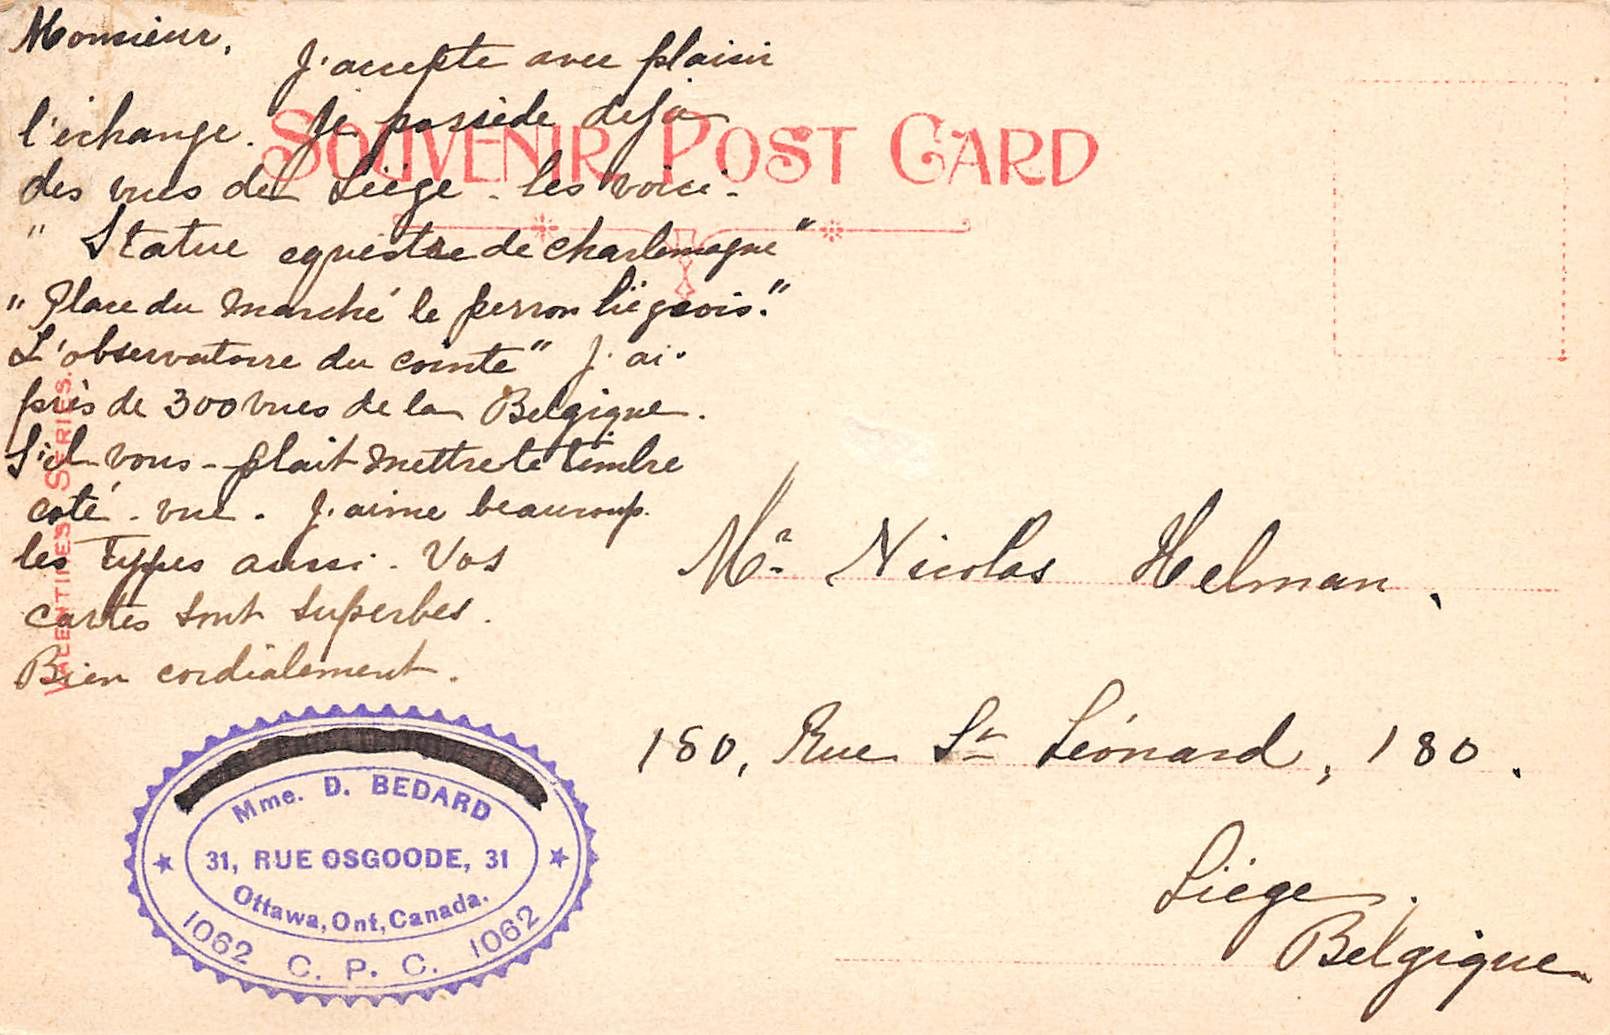 Monsieur,
J'accepte avec plaisir
l'échange. Je possède deja
des vues de Liège - les voici -
" Statue equestre de Charlemagne "
" Place du Marché le perron liégeois."
L'observatoire du cointe" J'ai
près de 300 vues de la Belgique.
S'il-vous-plait mettre le timbre
coté - vue. J'aime beaucoup
les types aussi. Vos
cartes sont superbes.
Bien cordialement.
SOUVENIR POST CARD
VALENTINES SERIES.
Mr Nicolas Helman,
180, Rue St Léonard, 180.
Liège.
Belgique
Mme. D. BEDARD
31, RUE OSGOODE, 31
Ottawa, Ont, Canada.
1062 C. P. C. 1062